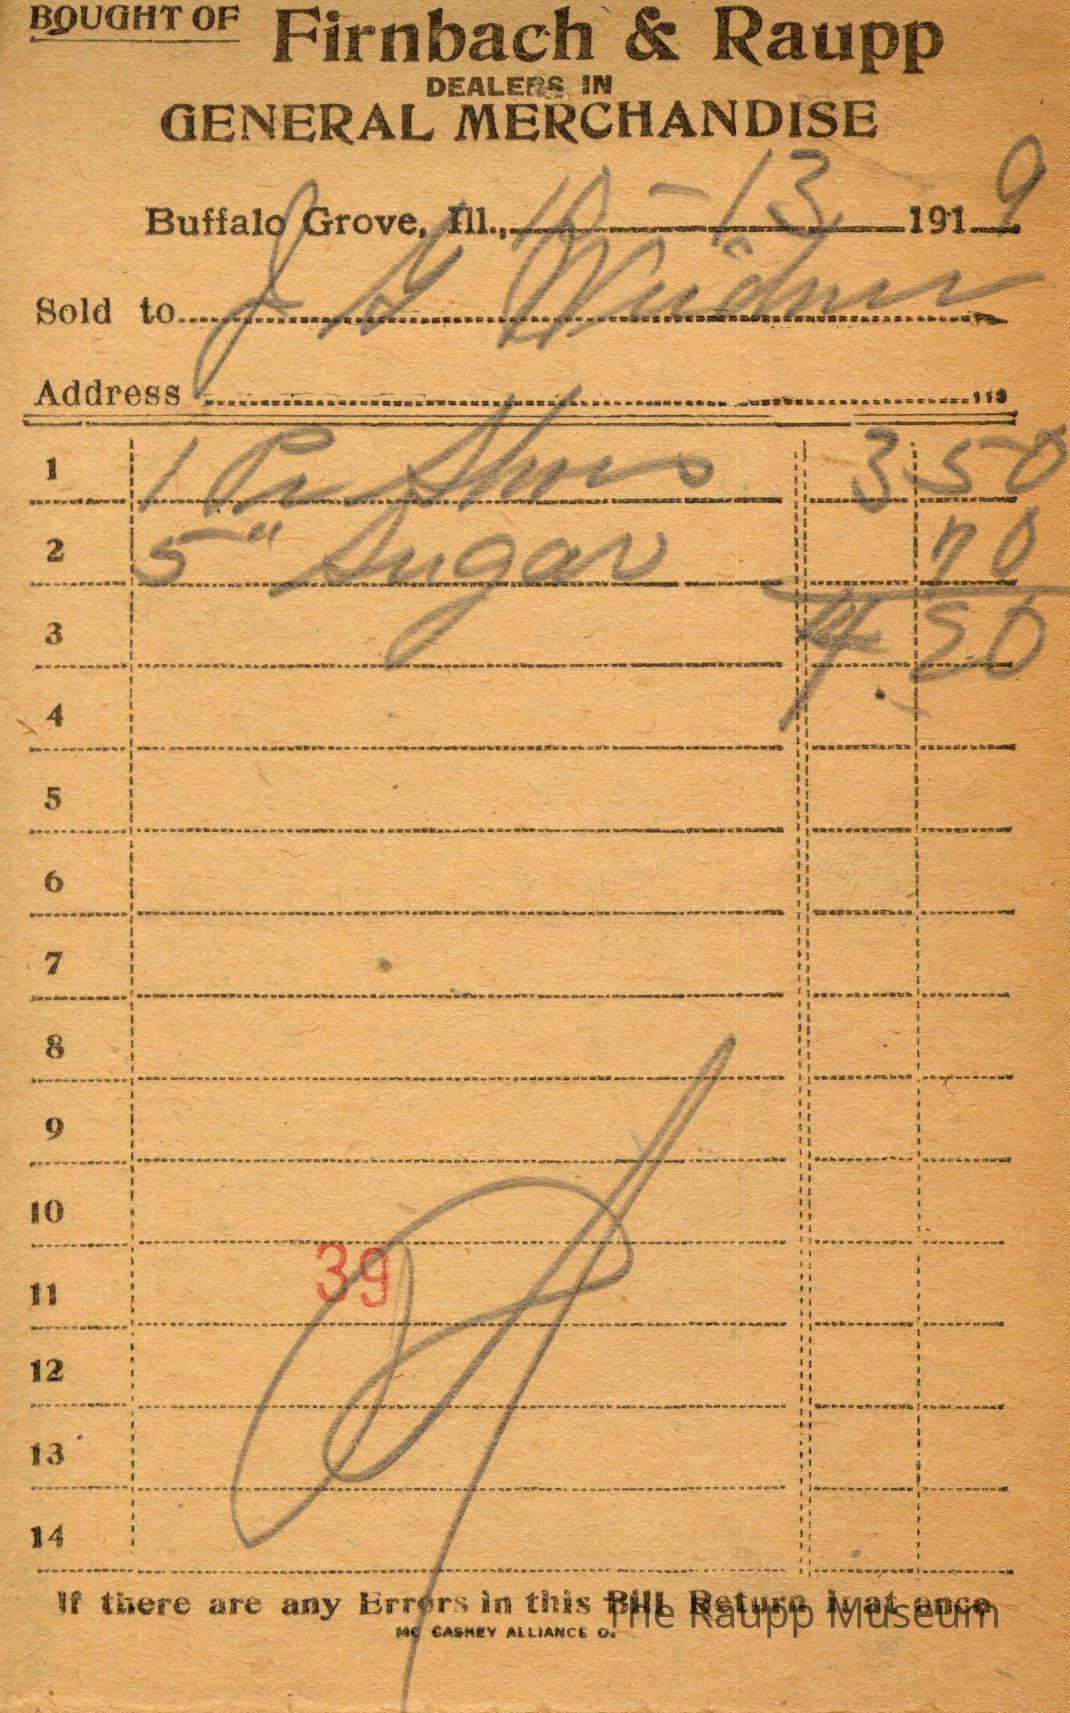 BOUGHT OF Firnbach & Raupp
DEALERS IN
GENERAL MERCHANDISE
Buffalo Grove, Ill., 10 - 13 1919
Sold to J G Weidner
Address 113
1 1 Pr Shoes 3 50
2 5" Sugar 70
3 4.20
4
5
6
7
8
9
10
39
11
12
13
14
If there are any Errors in this Bill Return it at once
The Raupp Museum
MC CASKEY ALLIANCE O.